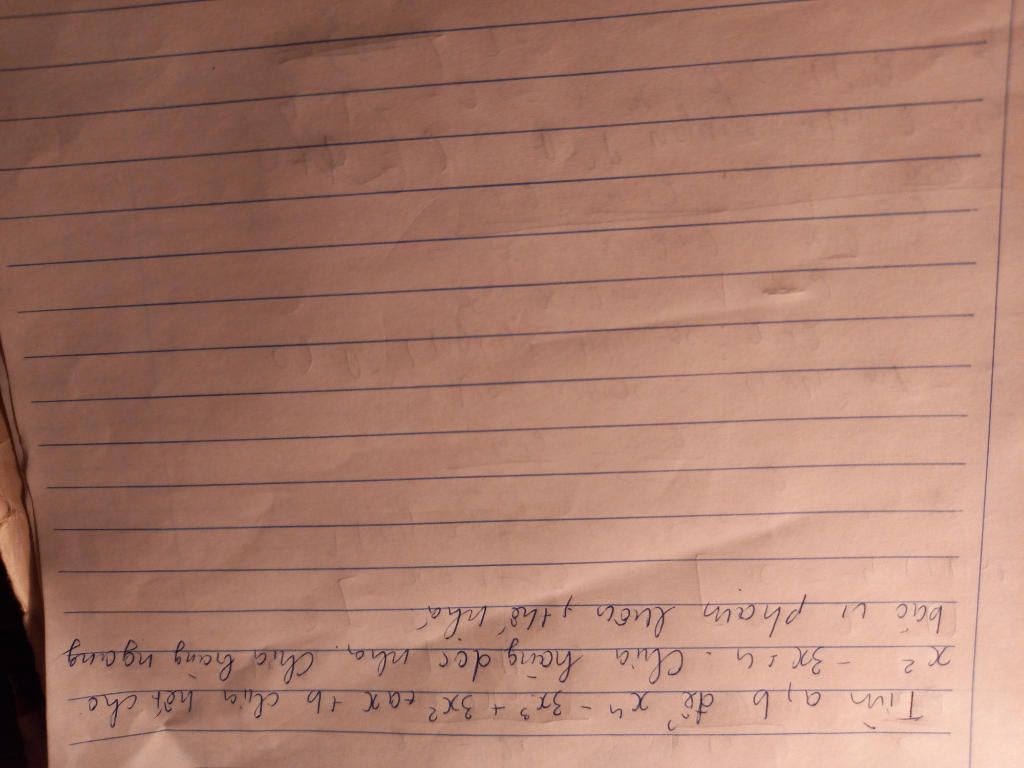 Tìm a, b để x⁴ - 3x³ + 3x² + ax + b chia hết cho
x² - 3x + 4. Chia hàng dọc nha. Chia hàng ngang
bác vi phạm luôn, thế nhá